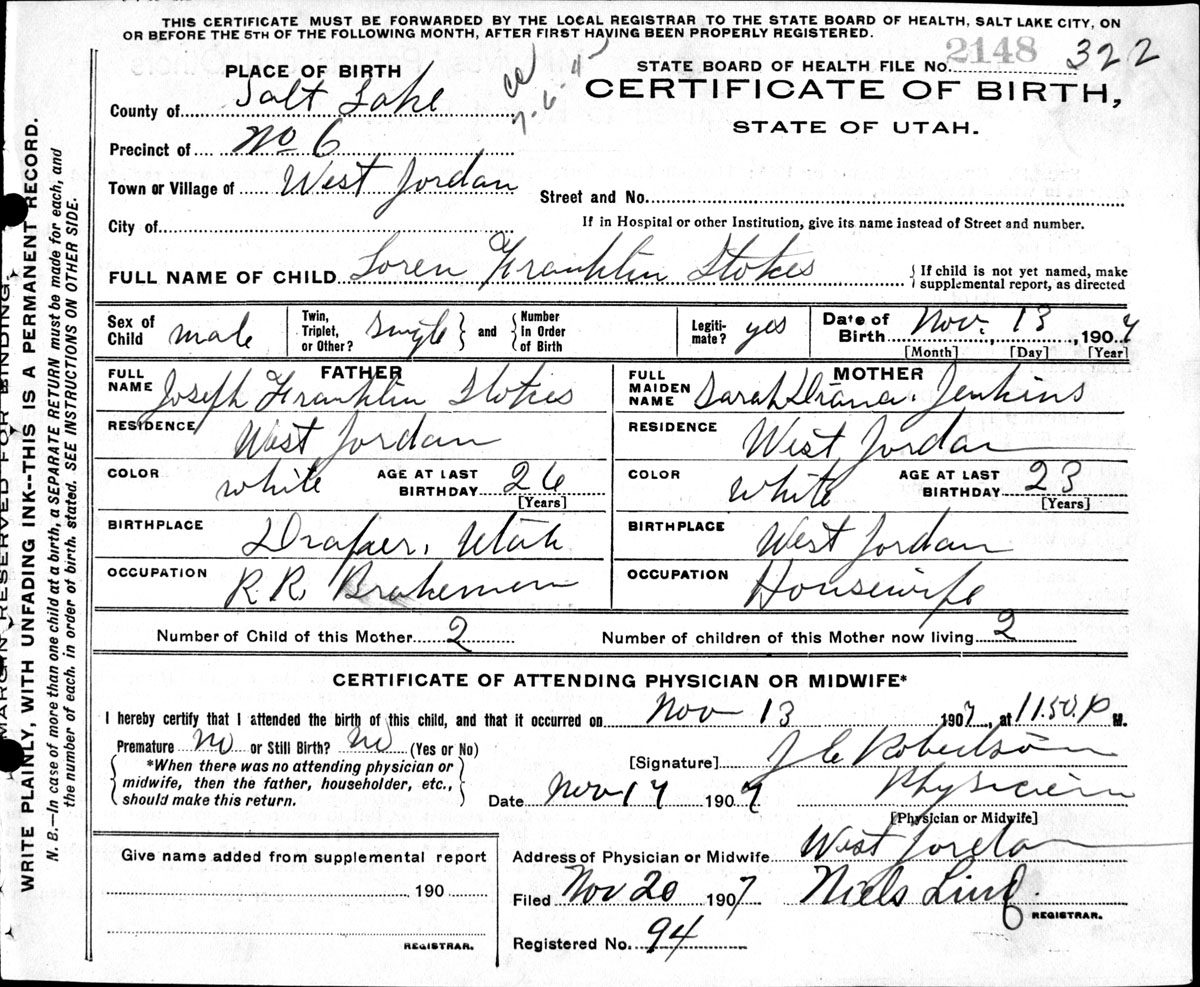 THIS CERTIFICATE MUST BE FORWARDED BY THE LOCAL REGISTRAR TO THE STATE BOARD OF HEALTH, SALT LAKE CITY, ON
OR BEFORE THE 5TH OF THE FOLLOWING MONTH, AFTER FIRST HAVING BEEN PROPERLY REGISTERED.
STATE BOARD OF HEALTH FILE No. 2148 322
CERTIFICATE OF BIRTH,
STATE OF UTAH.
PLACE OF BIRTH
County of Salt Lake
Precinct of No 6
Town or Village of West Jordan
Street and No.
City of
If in Hospital or other Institution, give its name instead of Street and number.
FULL NAME OF CHILD Loren Franklin Stokes
{If child is not yet named, make
supplemental report, as directed
Sex of Child male
Twin, Triplet, or Other? Single } and { Number In Order of Birth
Legiti-mate? yes
Date of Birth Nov. 13, 1907
[Month] [Day] [Year]
FATHER
FULL NAME Joseph Franklin Stokes
RESIDENCE West Jordan
COLOR white AGE AT LAST BIRTHDAY 26
[Years]
BIRTHPLACE Draper, Utah
OCCUPATION R.R. Brakeman
MOTHER
FULL MAIDEN NAME Sarah Jenkins
RESIDENCE West Jordan
COLOR white AGE AT LAST BIRTHDAY 23
[Years]
BIRTHPLACE West Jordan
OCCUPATION Housewife
Number of Child of this Mother 2
Number of children of this Mother now living 2
CERTIFICATE OF ATTENDING PHYSICIAN OR MIDWIFE*
I hereby certify that I attended the birth of this child, and that it occurred on Nov 13 1907, at 11.50. P M.
Premature No or Still Birth? No (Yes or No)
{ *When there was no attending physician or
midwife, then the father, householder, etc.,
should make this return. }
[Signature] J C Robertson
Physician
[Physician or Midwife]
Date Nov 17 1907
Address of Physician or Midwife West Jordan
Filed Nov 20 1907 Niels Lind
REGISTRAR.
Registered No. 94
Give name added from supplemental report
190
REGISTRAR.
MARGIN RESERVED FOR BINDING.
WRITE PLAINLY, WITH UNFADING INK--THIS IS A PERMANENT RECORD.
N. B.—In case of more than one child at a birth, a SEPARATE RETURN must be made for each, and
the number of each, in order of birth, stated. SEE INSTRUCTIONS ON OTHER SIDE.